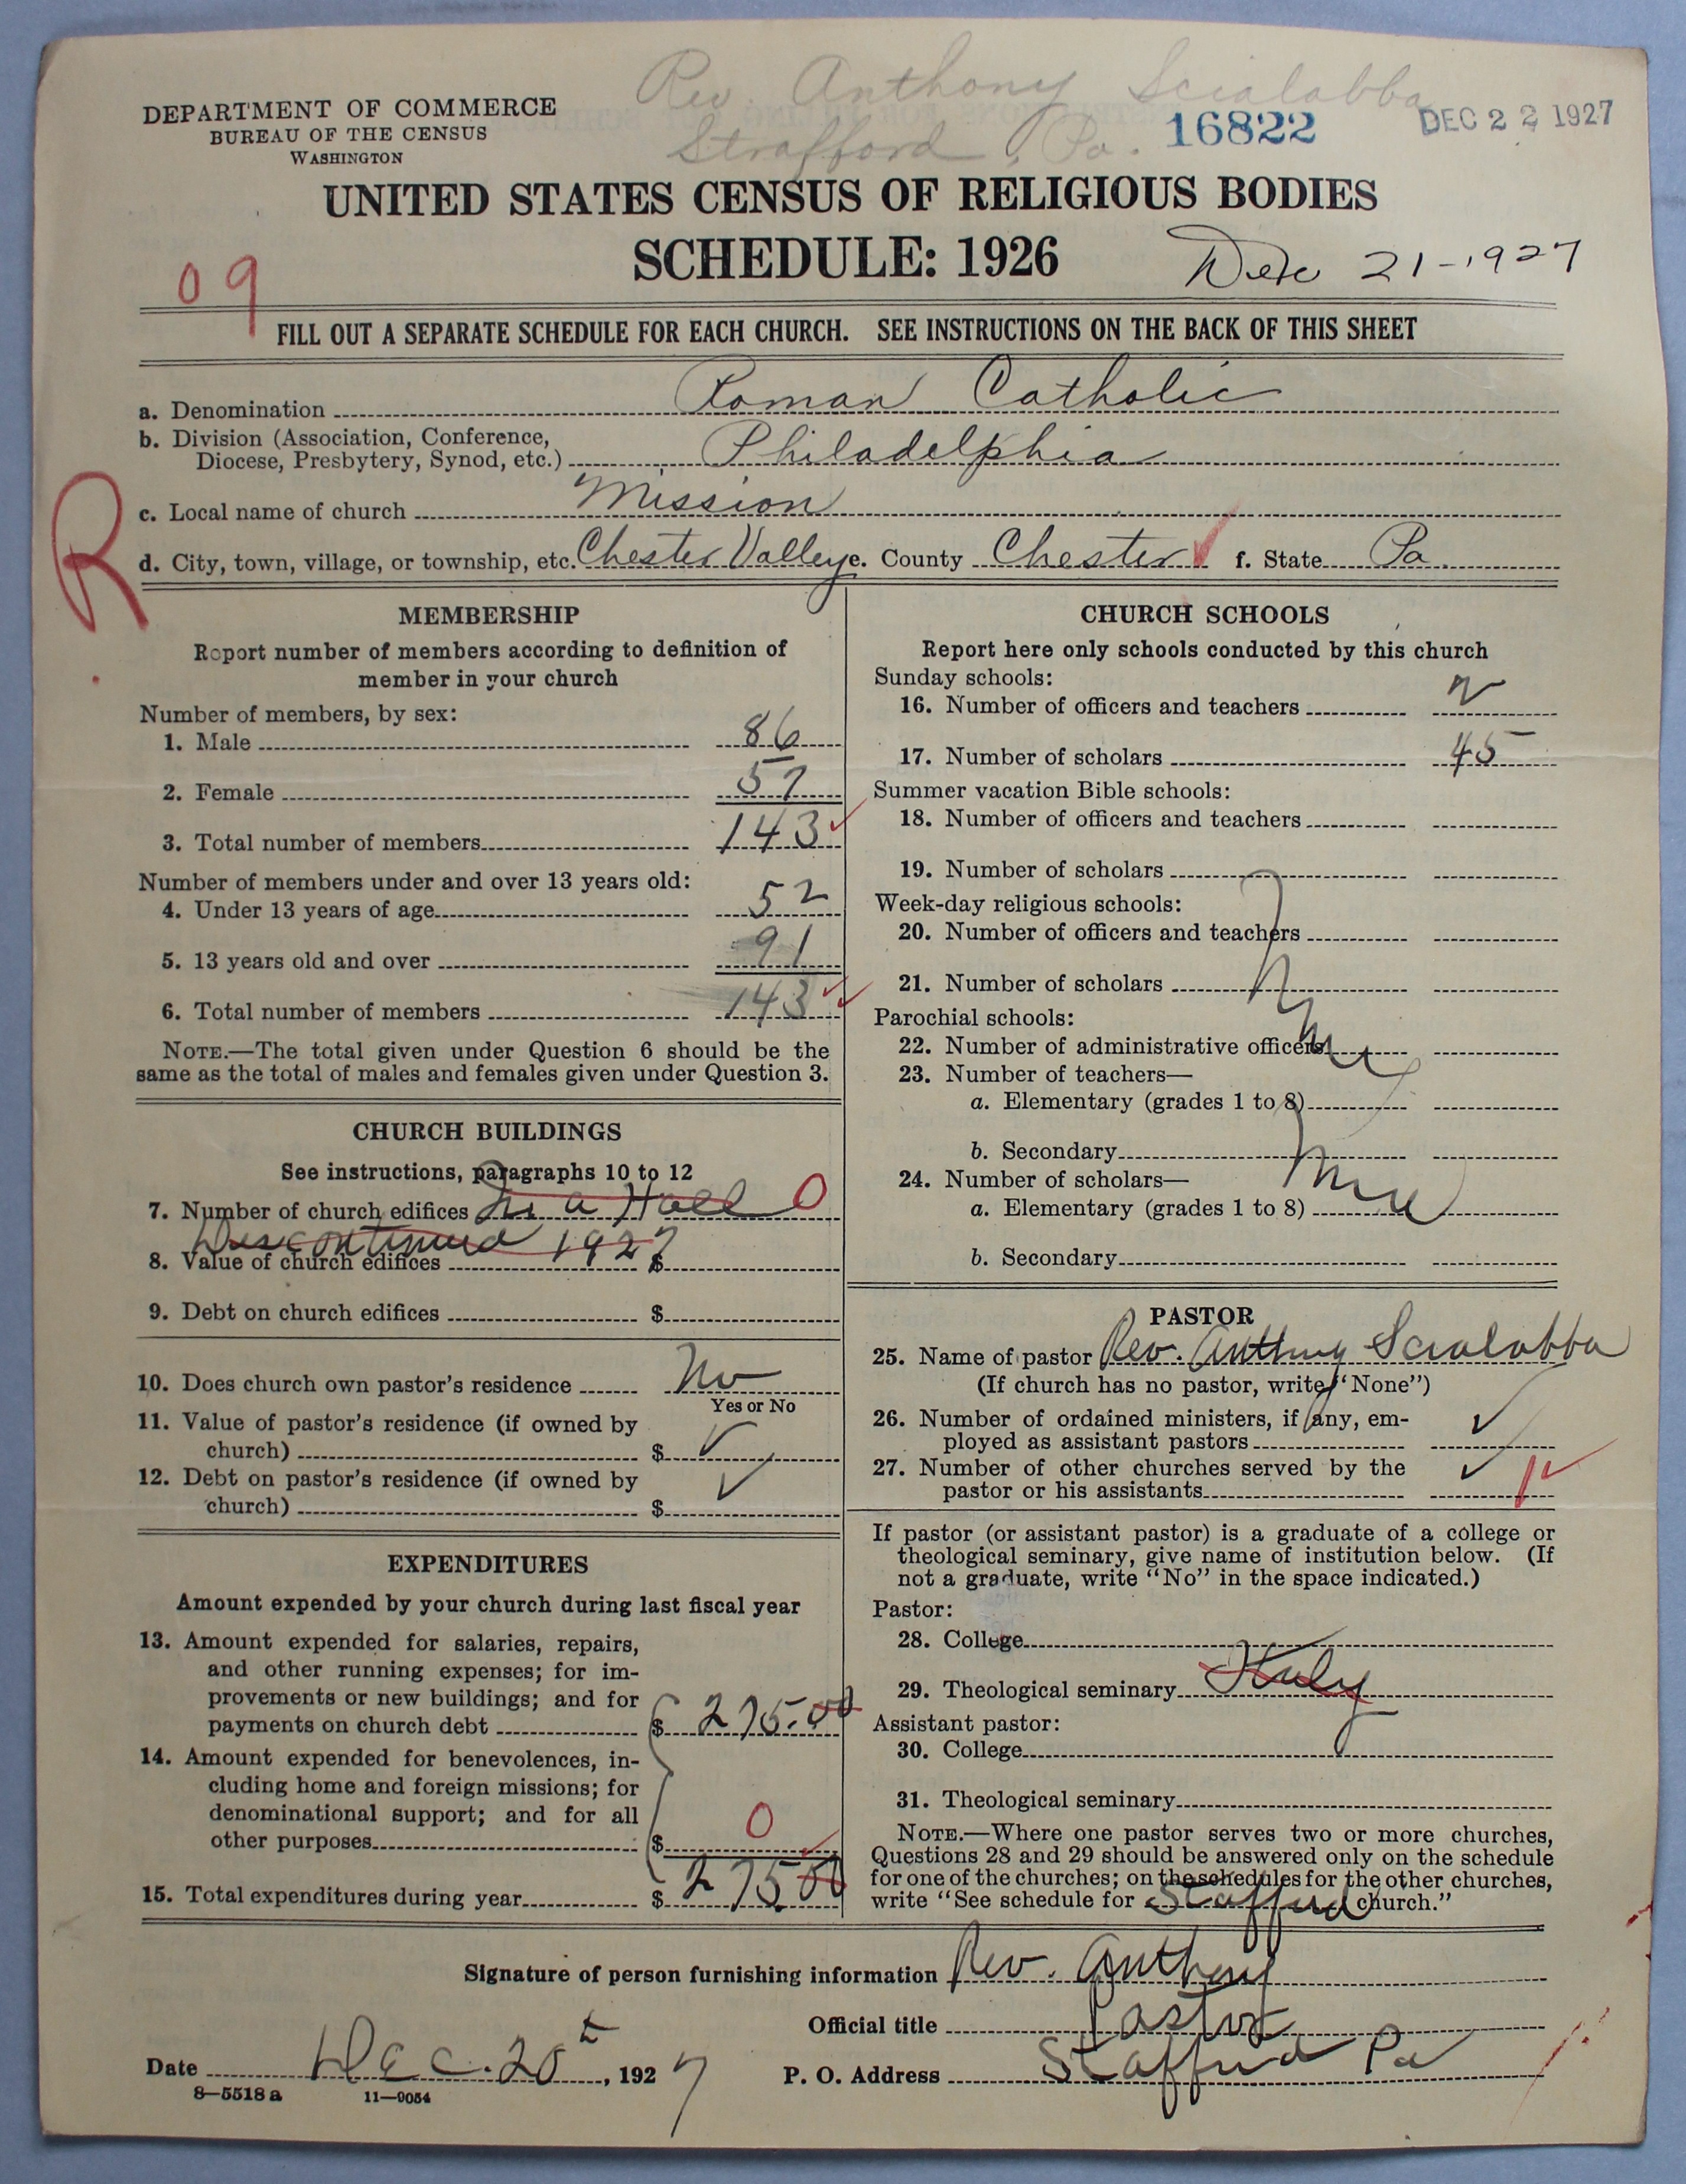 Rev. Anthony Scialabba
Strafford, Pa.
16822
DEC 22 1927
DEPARTMENT OF COMMERCE
BUREAU OF THE CENSUS
WASHINGTON
UNITED STATES CENSUS OF RELIGIOUS BODIES
SCHEDULE: 1926
Dec 21-1927
09
FILL OUT A SEPARATE SCHEDULE FOR EACH CHURCH. SEE INSTRUCTIONS ON THE BACK OF THIS SHEET
a. Denomination Roman Catholic
b. Division (Association, Conference,
Diocese, Presbytery, Synod, etc.) Philadelphia
c. Local name of church Mission
R
d. City, town, village, or township, etc. Chester Valley e. County Chester f. State Pa.
MEMBERSHIP
Report number of members according to definition of
member in your church
Number of members, by sex:
1. Male 86
2. Female 57
3. Total number of members 143
Number of members under and over 13 years old:
4. Under 13 years of age 52
5. 13 years old and over 91
6. Total number of members 143
NOTE.—The total given under Question 6 should be the
same as the total of males and females given under Question 3.
CHURCH BUILDINGS
See instructions, paragraphs 10 to 12
7. Number of church edifices In a Hall 0
Discontinued 1927
8. Value of church edifices $
9. Debt on church edifices $
10. Does church own pastor's residence No
Yes or No
11. Value of pastor's residence (if owned by
church) $ ✓
12. Debt on pastor's residence (if owned by
church) $ ✓
EXPENDITURES
Amount expended by your church during last fiscal year
13. Amount expended for salaries, repairs,
and other running expenses; for im-
provements or new buildings; and for
payments on church debt $ 275.00
14. Amount expended for benevolences, in-
cluding home and foreign missions; for
denominational support; and for all
other purposes $ 0
15. Total expenditures during year $ 275 00
CHURCH SCHOOLS
Report here only schools conducted by this church
Sunday schools:
16. Number of officers and teachers 2
17. Number of scholars 45
Summer vacation Bible schools:
18. Number of officers and teachers
19. Number of scholars
Week-day religious schools:
20. Number of officers and teachers
21. Number of scholars
Parochial schools:
22. Number of administrative officers
23. Number of teachers—
a. Elementary (grades 1 to 8)
b. Secondary
24. Number of scholars—
a. Elementary (grades 1 to 8)
b. Secondary
PASTOR
25. Name of pastor Rev. Anthony Scialabba
(If church has no pastor, write "None")
26. Number of ordained ministers, if any, em-
ployed as assistant pastors ✓
27. Number of other churches served by the
pastor or his assistants ✓ 1✓
If pastor (or assistant pastor) is a graduate of a college or
theological seminary, give name of institution below. (If
not a graduate, write "No" in the space indicated.)
Pastor:
28. College
29. Theological seminary Italy
Assistant pastor:
30. College
31. Theological seminary
NOTE.—Where one pastor serves two or more churches,
Questions 28 and 29 should be answered only on the schedule
for one of the churches; on the schedules for the other churches,
write "See schedule for Stafford church."
Signature of person furnishing information Rev. Anthony
Official title Pastor
Date Dec. 20th, 1927
P. O. Address Stafford Pa
8—5518 a
11—9054